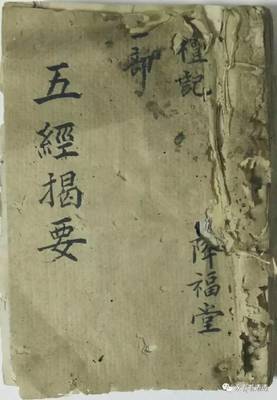 禮記
一部
降福堂
五經揭要